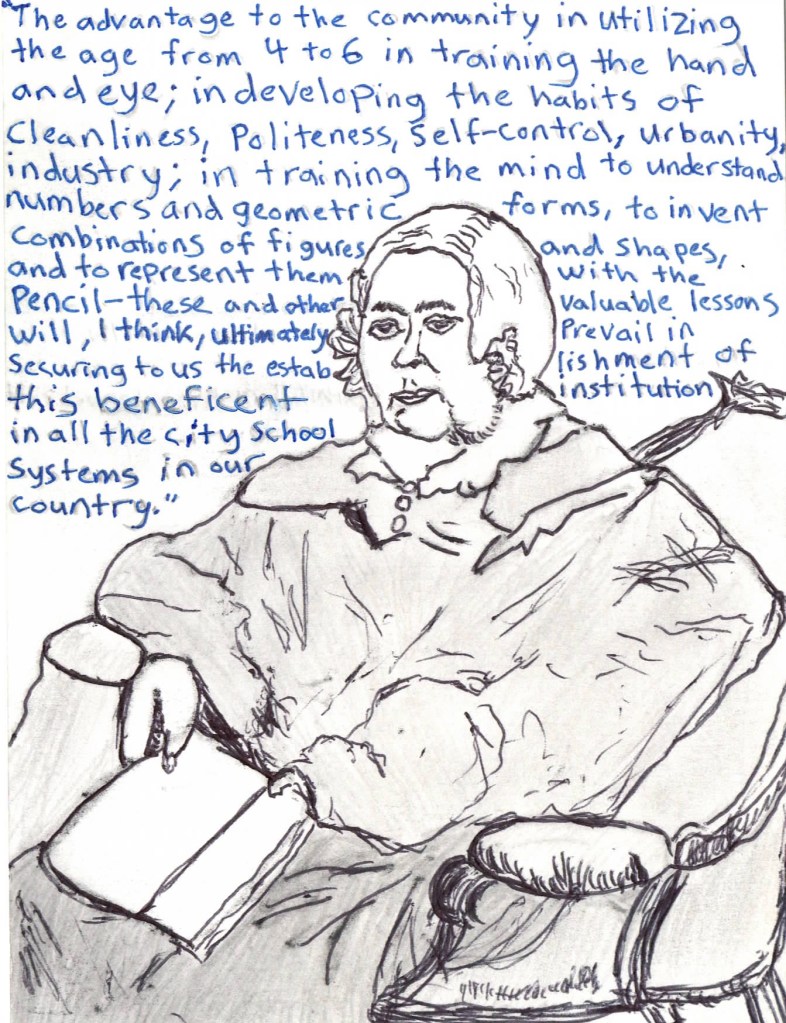 "The advantage to the community in utilizing
the age from 4 to 6 in training the hand
and eye; in developing the habits of
Cleanliness, Politeness, self-control, urbanity,
industry; in training the mind to understand
numbers and geometric forms, to invent
Combinations of figures and shapes,
and to represent them with the
Pencil—these and other valuable lessons
will, I think, ultimately Prevail in
Securing to us the establishment of
this beneficent institution
in all the City School
Systems in our
country."